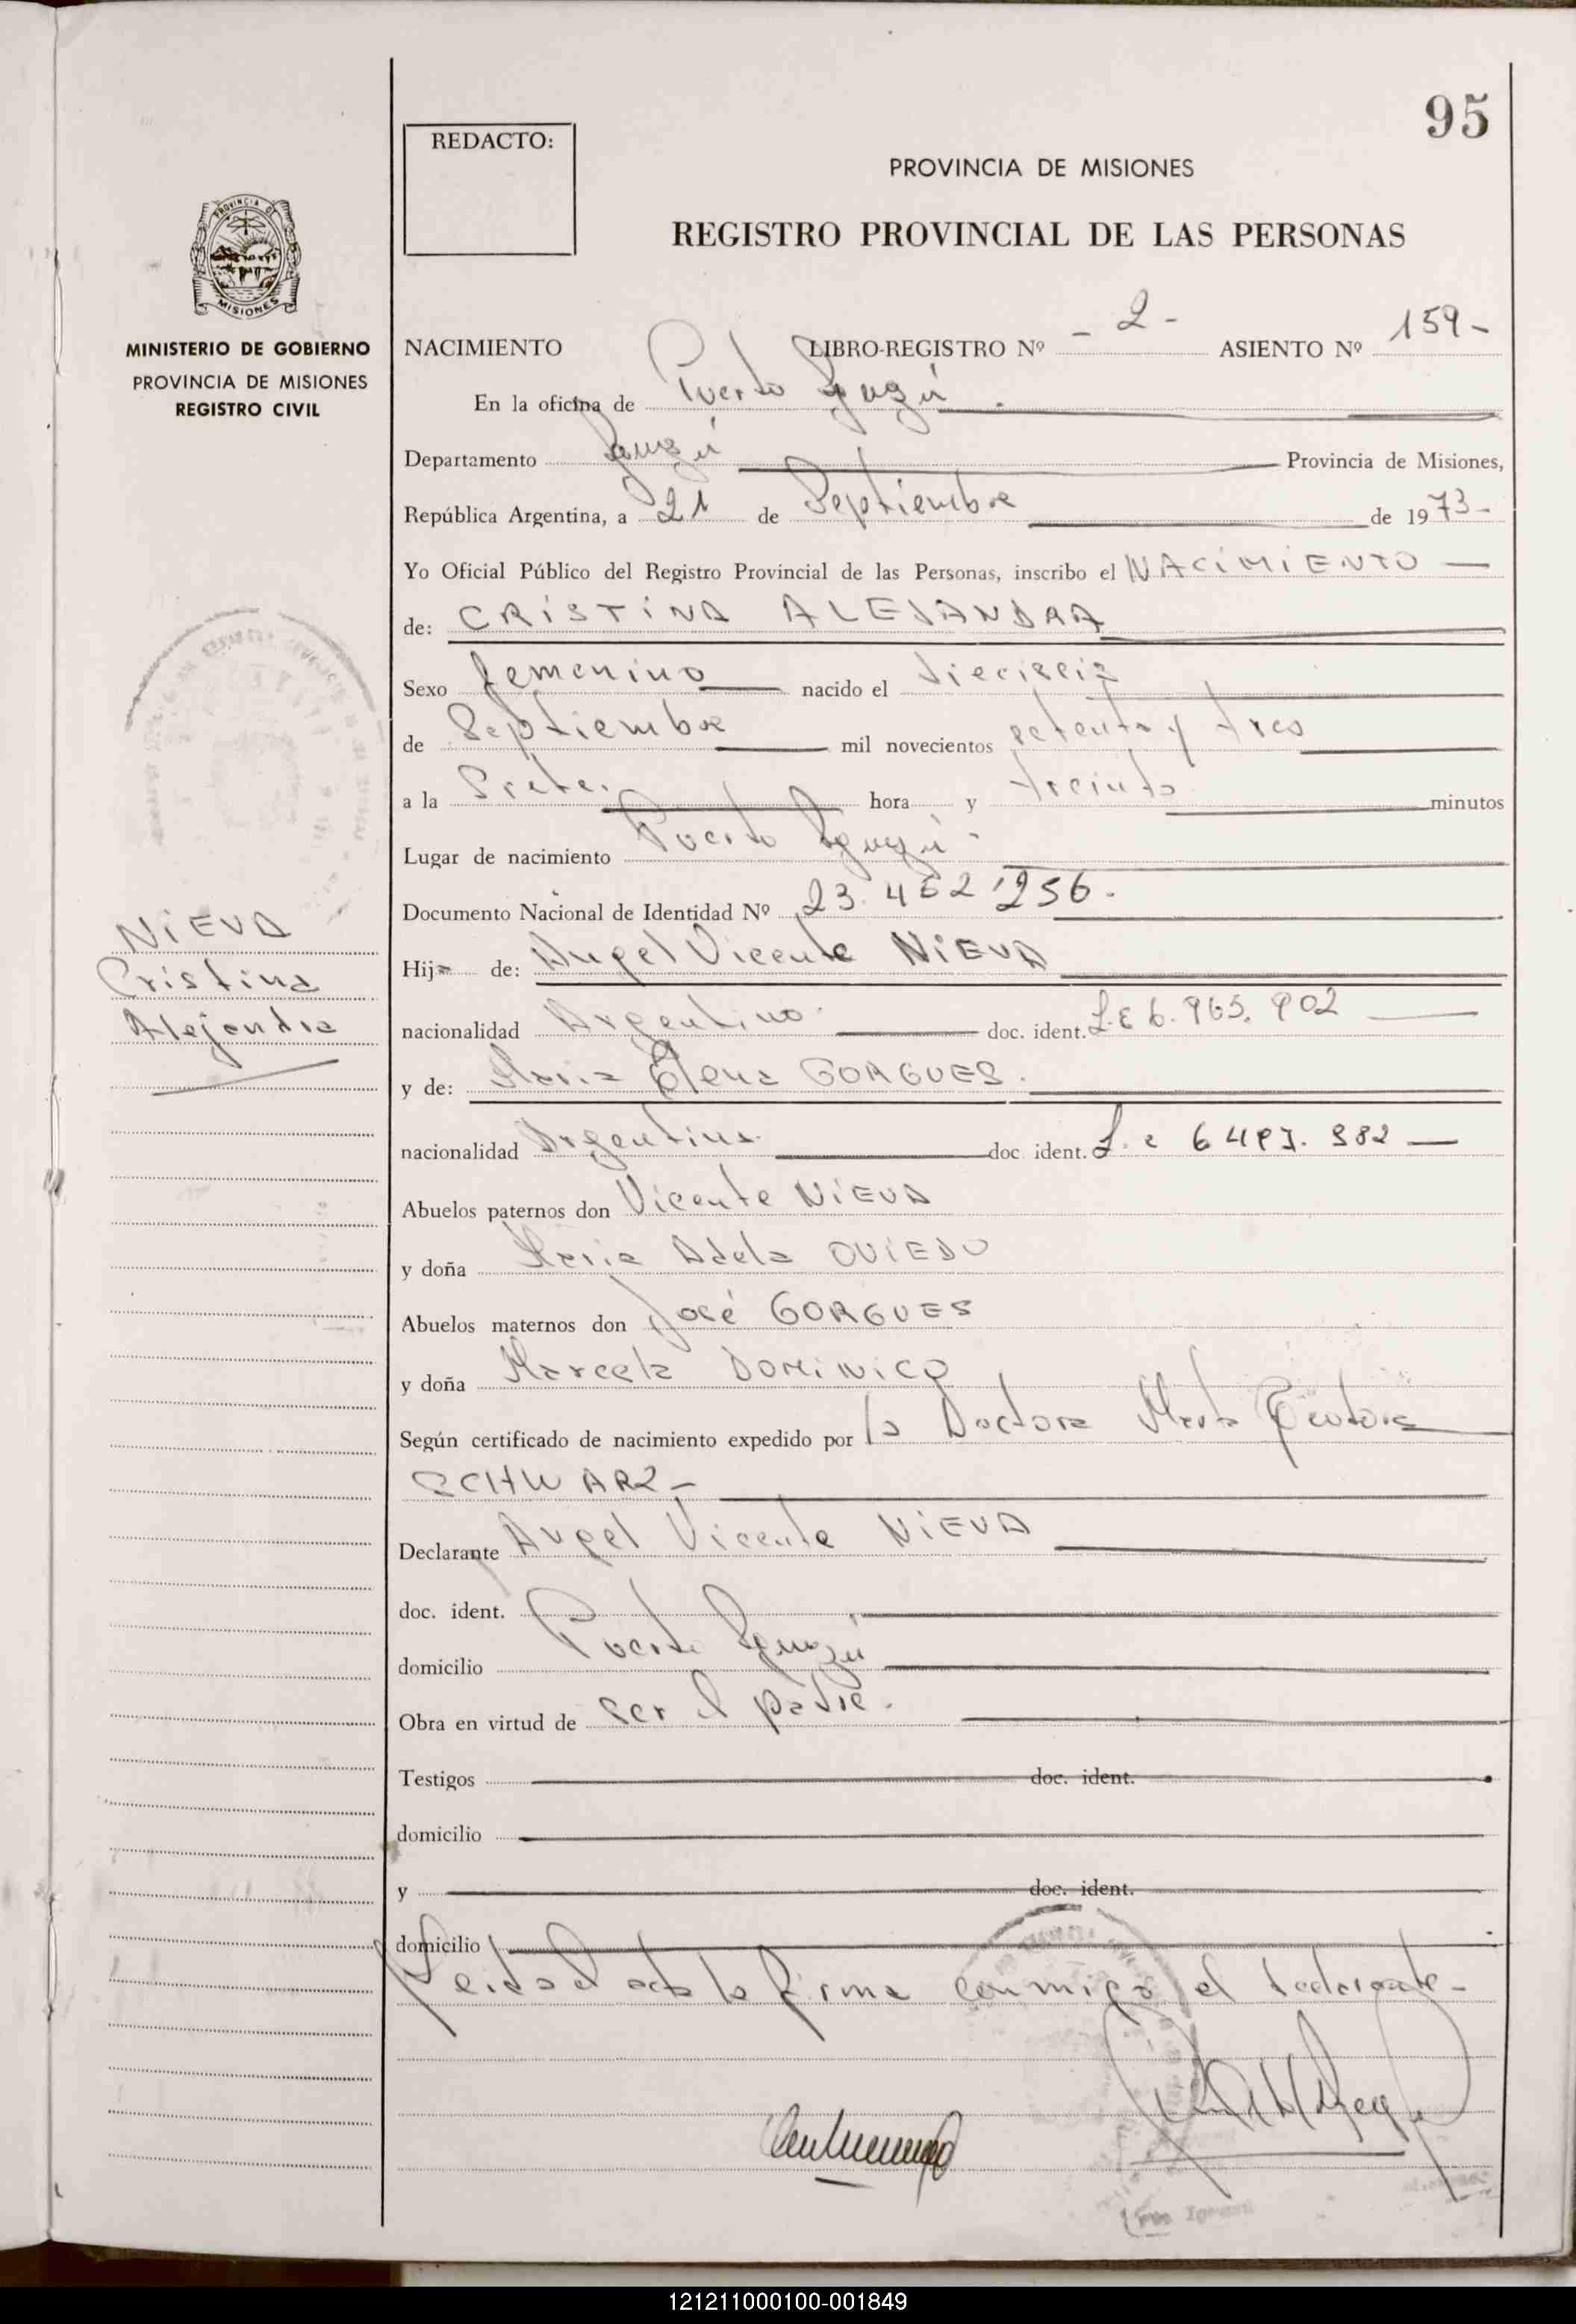 95
REDACTO:
PROVINCIA DE MISIONES
REGISTRO PROVINCIAL DE LAS PERSONAS
PROVINCIA DE
MISIONES
MINISTERIO DE GOBIERNO
PROVINCIA DE MISIONES
REGISTRO CIVIL
NACIMIENTO LIBRO-REGISTRO Nº - 2 - ASIENTO Nº 159-
En la oficina de Puerto Iguazú.
Departamento Iguazú Provincia de Misiones,
República Argentina, a 21 de Septiembre de 1973-
Yo Oficial Público del Registro Provincial de las Personas, inscribo el NACIMIENTO
de: CRISTINA ALEJANDRA
Sexo femenino nacido el dieciseis
de Septiembre mil novecientos setenta y tres
a la Siete. hora y treinta minutos
Lugar de nacimiento Puerto Iguazú-
Documento Nacional de Identidad Nº 23.462.256.
NIEVA
Cristina
Alejandra
Hija de: Angel Vicente NIEVA
nacionalidad Argentino. doc. ident. L.E 6.965.902
y de: Maria Elena GORGUES.
nacionalidad Argentina. doc. ident. L.c 382
Abuelos paternos don Vicente NIEVA
y doña Maria Adela OVIEDO
Abuelos maternos don José GORGUES
y doña Marcela DOMINICO
Según certificado de nacimiento expedido por la Doctora Marta
SCHWARZ-
Declarante Angel Vicente NIEVA
doc. ident.
domicilio Puerto Iguazú
Obra en virtud de ser el padre.
Testigos doc. ident.
domicilio
y doc. ident.
domicilio
Leida el acta la firma conmigo el declarante-
121211000100-001849